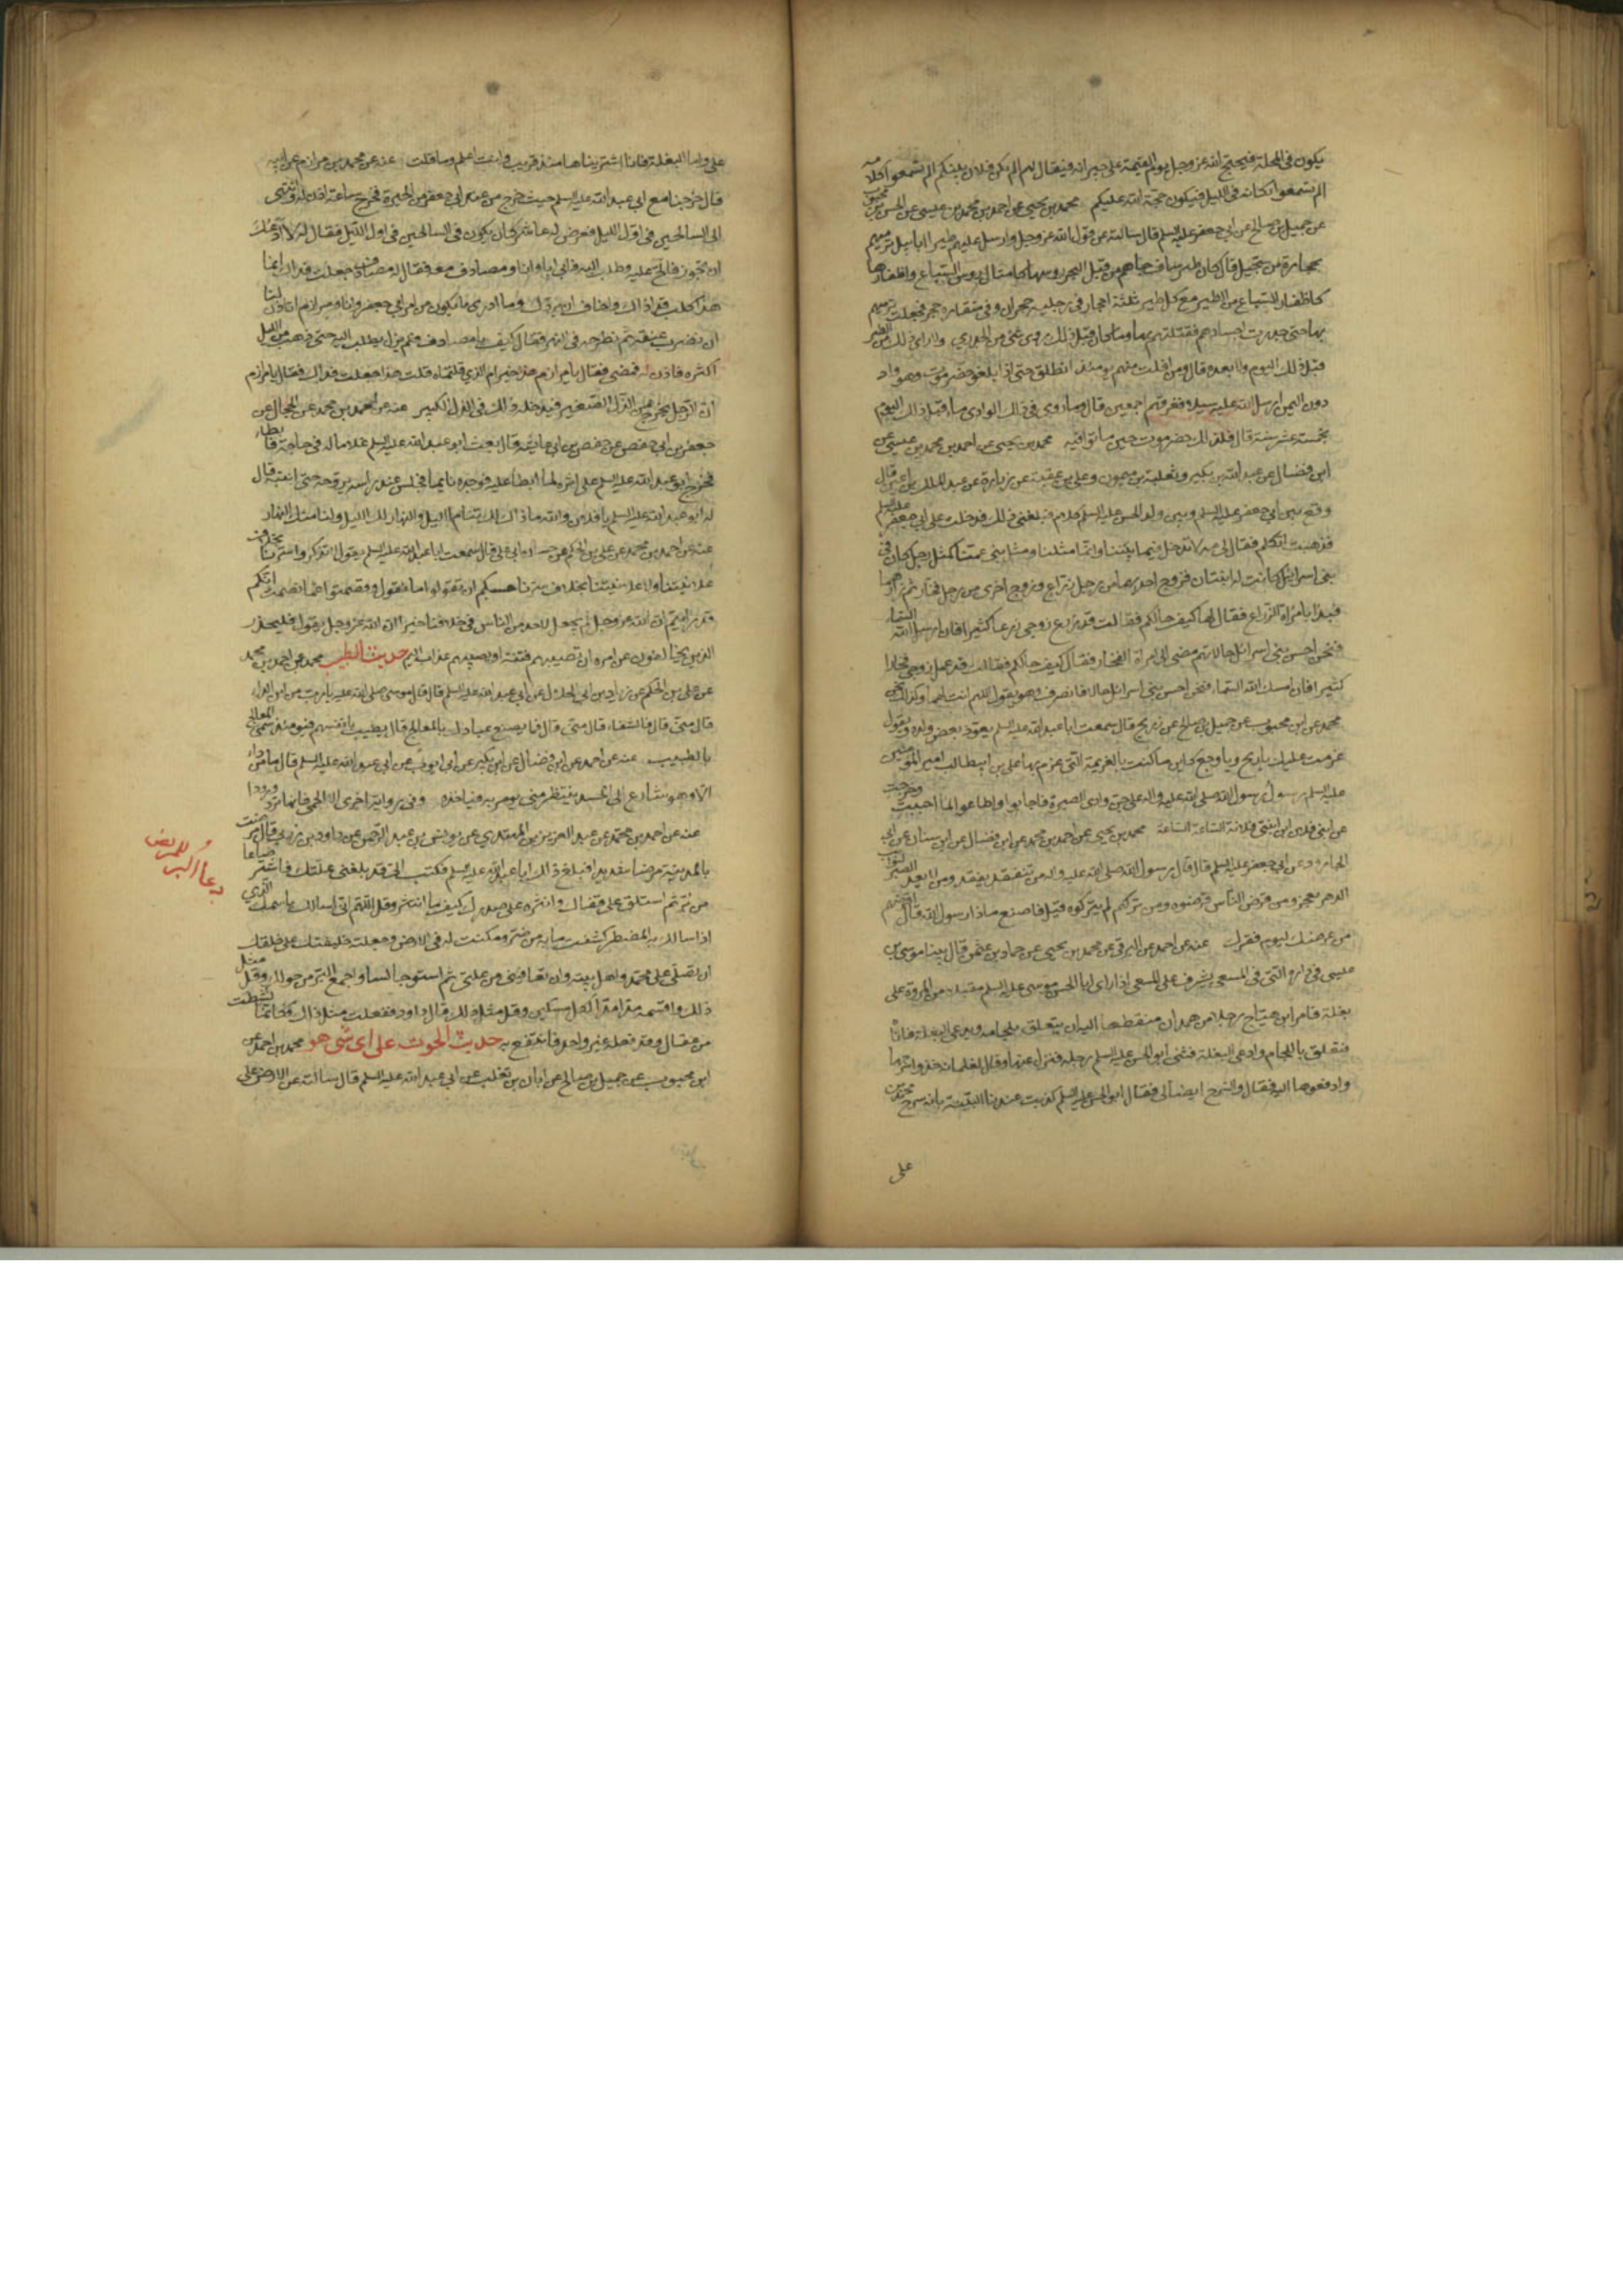 يكون فى المحلة فيحتج الله عز وجل يوم القيمة على جيرانه فيقال لهم الم يكن فلان بينكم الم تسمعوا كلامه
الم تسمعوا بكائه فى الليل فيكون حجة الله عليكم محمد بن يحيى عن احمد بن محمد بن عيسى عن الحسن بن محبوب
عن جميل بن صالح عن ابى جعفر عليه السلم قال سالته عن قول الله عز وجل وارسل عليهم طيرا ابابيل ترميهم
بحجارة من سجيل قال كان طير ساف جاءهم من قبل البحر رؤسها كامثال رؤس السباع واظفارها
كاظفار السباع من الطير مع كل طير ثلثة احجار فى رجليه حجران وفى منقاره حجر فجعلت ترميهم
بها حتى جدرت اجسادهم فقتلتهم بها وما كان قبل ذلك رؤى شئ من الجدرى ولا راى ذلك من الطير
قبل ذلك اليوم ولا بعده قال ومن افلت منهم يومئذ انطلق حتى اذا بلغوا حضرموت وهو واد
دون اليمن ارسل الله عليهم سيلا فغرقهم اجمعين قال وما رؤى فى ذلك الوادى ماء قبل ذلك اليوم
بخمسة عشر سنة قال فلذلك حضرموت حين ماتوا فيه محمد بن يحيى عن احمد بن محمد بن عيسى عن
ابن فضال عن عبد الله بن بكير وثعلبة بن ميمون وعلى بن عقبة عن زرارة عن عبد الملك بن اعين قال
وقع بين ابى جعفر عليه السلم وبين ولد الحسن عليه السلم كلام فبلغنى ذلك فدخلت على ابى جعفر عليه السلم
فذهبت اتكلم فقال لى مه لا تدخل فيما بيننا وانما مثلنا ومثل بنى عمنا كمثل رجل كان فى
بنى اسرائيل كانت له ابنتان فزوج احديهما من رجل زراع وزوج اخرى من رجل فخار ثم زارهما
فبدا بامراة الزراع فقال لها كيف حالكم فقالت قد زرع زوجى زرعا كثيرا فان ارسل الله السماء
فنحن احسن بنى اسرائيل حالا ثم مضى الى امراة الفخار فقال كيف حالكم فقالت قد عمل زوجى فخارا
كثيرا فان امسك الله السماء فنحن احسن بنى اسرائيل حالا فانصرف وهو يقول اللهم انت لهما وكذلك نحن
محمد عن ابن محبوب عن جميل بن صالح عن ذريح قال سمعت ابا عبد الله عليه السلم يعوذ بعض ولده ويقول
عزمت عليك يا ريح ويا وجع كاين ما كنت بالعزيمة التى عزم بها على بن ابيطالب امير المؤمنين
عليه السلم رسول رسول الله صلى الله عليه واله على جن وادى الصبرة فاجابوا واطاعوا لما اجبت وخرجت
عن ابنى فلان ابن ابنتى فلانة الساعة الساعة محمد بن يحيى عن احمد بن محمد عن ابن فضال عن ابن سنان عن ابى
الجارود عن ابى جعفر عليه السلم قال قال رسول الله صلى الله عليه واله من يتفقد يفقد ومن لا يعد الصبر لنوائب
الدهر يعجز ومن قرض الناس قرضوه ومن تركهم لم يتركوه قيل فاصنع ماذا يا رسول الله قال اقرضهم
من عرضك ليوم فقرك عنه عن احمد عن البرقى عن محمد بن يحيى عن حماد بن عثمن قال بينا موسى بن
عيسى فى داره التى فى المسعى يشرف على المسعى اذ راى ابا الحسن موسى عليه السلم مقبلا من المروة على
بغلة فامر ابن هياج رجلا من همدان منقطعا اليه ان يتعلق بلجامه ويدعى البغلة فاتاه
فتعلق باللجام وادعى البغلة فثنى ابو الحسن عليه السلم رجله فنزل عنها وقال لغلمانه خذوا سرجها
وادفعوها اليه فقال والسرج ايضا لى فقال ابو الحسن عليه السلم كذبت عندنا البينة بانه سرج محمد بن
على
على واما البغلة فانا اشتريناها منذ قريب وانت اعلم وما قلت عنه عن محمد بن مرازم عن ابيه
قال خرجنا مع ابى عبد الله عليه السلم حيث خرج من عند ابى جعفر من الحيرة فخرج ساعة اذن له وانتهى
الى السالحين فى اول الليل فعرض له عاشر كان يكون فى السالحين فى اول الليل فقال له لا ادعك
ان تجوز فالح عليه وطلب اليه فابى اباء وانا ومصادف معه فقال له مصادف جعلت فداك انما
هذا كلب قد اذاك واخاف ان يردك وما ادرى ما يكون من امر ابى جعفر وانا ومرازم اتاذن لنا
ان نضرب عنقه ثم نطرحه فى النهر فقال كف يا مصادف فلم يزل يطلب اليه حتى ذهب من الليل
اكثره فاذن له فمضى فقال يا مرازم هذا خير ام الذى قلتماه قلت هذا جعلت فداك فقال يا مرازم
ان الرجل يخرج من الذل الصغير فيدخله ذلك فى الذل الكبير عنه عن احمد بن محمد عن الحجال عن
حفص بن ابى عايشة قال بعث ابو عبد الله عليه السلم غلاما له فى حاجة فابطاء
فخرج ابو عبد الله عليه السلم على اثره لما ابطا عليه فوجده نايما فجلس عند راسه يروحه حتى انتبه قال
له ابو عبد الله عليه السلم يا فلان والله ما ذاك لك تنام الليل والنهار لك الليل ولنا منك النهار
عنه عن احمد بن محمد عن على بن الحكم عن حسان ابى على قال سمعت ابا عبد الله عليه السلم يقول لا تذكروا سرنا بخلاف
علانيتنا ولا علانيتنا بخلاف سرنا حسبكم ان تقولوا ما نقول وتصمتوا عما نصمت انكم
قد رايتم ان الله عز وجل لم يجعل لاحد من الناس فى خلافنا خيرا ان الله عز وجل يقول فليحذر
الذين يخالفون عن امره ان تصيبهم فتنة او يصيبهم عذاب اليم حديث الطبيب محمد عن احمد بن محمد
عن على بن الحكم عن زياد بن ابى الحلال عن ابى عبد الله عليه السلم قال قال موسى صلى الله عليه يا رب من اين الداء
قال منى قال فالشفاء قال منى قال فما يصنع عبادك بالمعالج قال يطيب بانفسهم فيومئذ سمى المعالج
بالطبيب عنه عن احمد عن ابن فضال عن ابن بكير عن ابى ايوب عن ابى عبد الله عليه السلم قال ما من داء
الا وهو شارع الى الجسد ينتظر متى يومر به فياخذه وفى رواية اخرى الا الحمى فانها ترد ورودا
عنه عن احمد بن محمد عن عبد العزيز بن المهتدى عن يونس بن عبد الرحمن عن داود بن زربى قال مرضت
بالمدينة مرضا شديدا فبلغ ذلك ابا عبد الله عليه السلم فكتب الى قد بلغنى علتك فاشتر صاعا
من بر ثم استلق على قفاك وانثره على صدرك كيف ما انتثر وقل اللهم انى اسالك باسمك الذى
اذا سالك به المضطر كشفت ما به من ضر ومكنت له فى الارض وجعلته خليفتك على خلقك
ان تصلى على محمد واهل بيته وان تعافينى من علتى ثم استو جالسا واجمع البر من حولك وقل مثل
ذلك واقسمه مدا مدا لكل مسكين وقل مثل ذلك قال داود ففعلت مثل ذلك فكانما نشطت
من عقال وقد فعله غير واحد فانتفع به حديث الحوت على اى شئ هو محمد عن احمد عن
ابن محبوب عن جميل بن صالح عن ابان بن تغلب عن ابى عبد الله عليه السلم قال سالته عن الارض على
دعاء البر للمريض